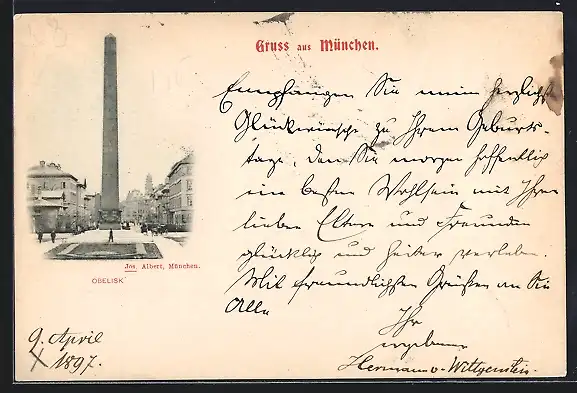 Gruss aus München.
Empfangen Sie meine herzlichst
Glückwünsche zu Ihrem Geburts-
tage, den Sie morgen hoffentlich
im besten Wohlsein mit Ihren
lieben Eltern und Freunden
glücklich und heiter verleben.
Mit freundlichsten Grüßen an Sie
Alle
Ihr
ergebener
Hermann v. Wittgenstein.
Jos. Albert, München.
OBELISK
9. April
1897.